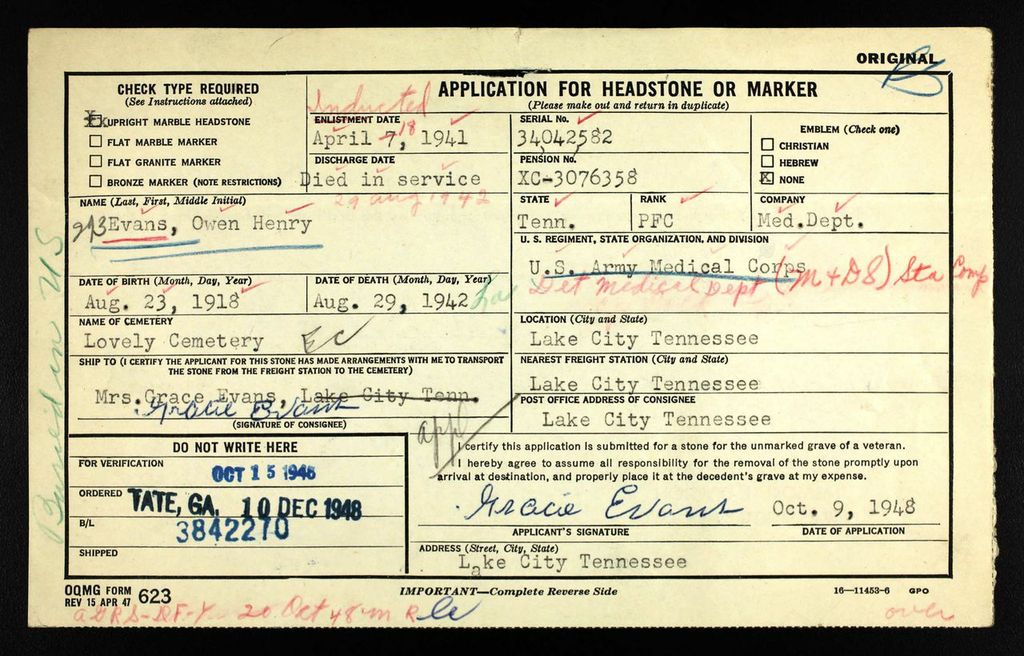 ORIGINAL
CHECK TYPE REQUIRED
(See Instructions attached)
UPRIGHT MARBLE HEADSTONE
FLAT MARBLE MARKER
FLAT GRANITE MARKER
BRONZE MARKER (NOTE RESTRICTIONS)
APPLICATION FOR HEADSTONE OR MARKER
(Please make out and return in duplicate)
Inducted
ENLISTMENT DATE
April 7, 18 1941
DISCHARGE DATE
Died in service
29 aug 1942
SERIAL No.
34042582
PENSION No.
XC-3076358
EMBLEM (Check one)
CHRISTIAN
HEBREW
NONE
NAME (Last, First, Middle Initial)
Evans, Owen Henry
STATE
Tenn.
RANK
PFC
COMPANY
Med.Dept.
U. S. REGIMENT, STATE ORGANIZATION, AND DIVISION
U.S. Army Medical Corps
Det medical Dept (M+DS) Sta Comp
DATE OF BIRTH (Month, Day, Year)
Aug. 23, 1918
DATE OF DEATH (Month, Day, Year)
Aug. 29, 1942
NAME OF CEMETERY
Lovely Cemetery EC
LOCATION (City and State)
Lake City Tennessee
SHIP TO (I CERTIFY THE APPLICANT FOR THIS STONE HAS MADE ARRANGEMENTS WITH ME TO TRANSPORT
THE STONE FROM THE FREIGHT STATION TO THE CEMETERY)
Mrs.Grace Evans, Lake City Tenn.
Gracie Evans
(SIGNATURE OF CONSIGNEE)
NEAREST FREIGHT STATION (City and State)
Lake City Tennessee
POST OFFICE ADDRESS OF CONSIGNEE
Lake City Tennessee
appl
DO NOT WRITE HERE
FOR VERIFICATION
OCT 15 1948
ORDERED
TATE, GA. 10 DEC 1948
B/L
3842270
SHIPPED
I certify this application is submitted for a stone for the unmarked grave of a veteran.
I hereby agree to assume all responsibility for the removal of the stone promptly upon
arrival at destination, and properly place it at the decedent's grave at my expense.
Gracie Evans Oct. 9, 1948
APPLICANT'S SIGNATURE DATE OF APPLICATION
ADDRESS (Street, City, State)
Lake City Tennessee
OQMG FORM
REV 15 APR 47 623
IMPORTANT—Complete Reverse Side
16—11453-6 GPO
20 Oct 48
over
Buried in US